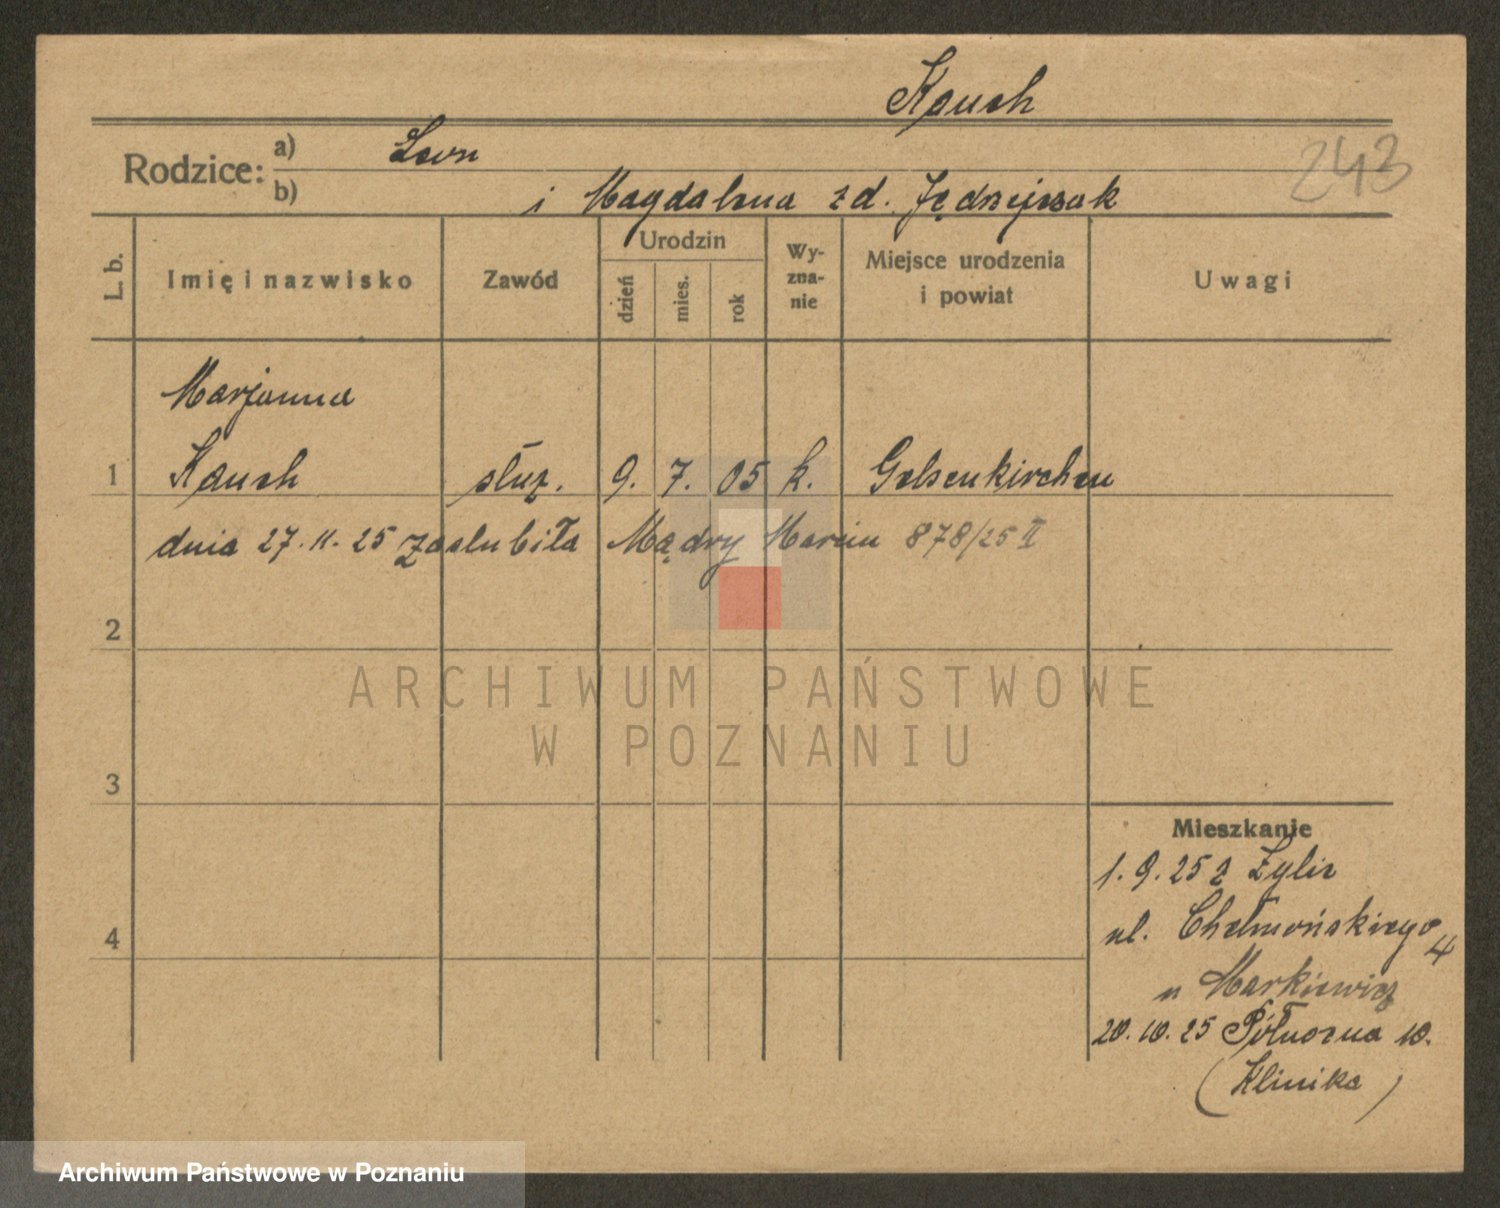 Kauch
243
Rodzice: a) Leon
b) i Magdalena zd. Jędrzejczak
L. b.
Imię i nazwisko
Zawód
Urodzin
dzień
mies.
rok
Wy-
zna-
nie
Miejsce urodzenia
i powiat
Uwagi
Marjanna
1 Kauch służ. 9. 7. 05 k. Gelsenkirchen
dnia 27. 11. 25 zaslubiła Mądry Marcin 878/25 II
2
3
4
Mieszkanie
1. 9. 25 z Żylic
ul. Chełmońskiego 4
u Markiewicz
20. 10. 25 Północna 10.
(Klinika)
ARCHIWUM PAŃSTWOWE
W POZNANIU
Archiwum Państwowe w Poznaniu